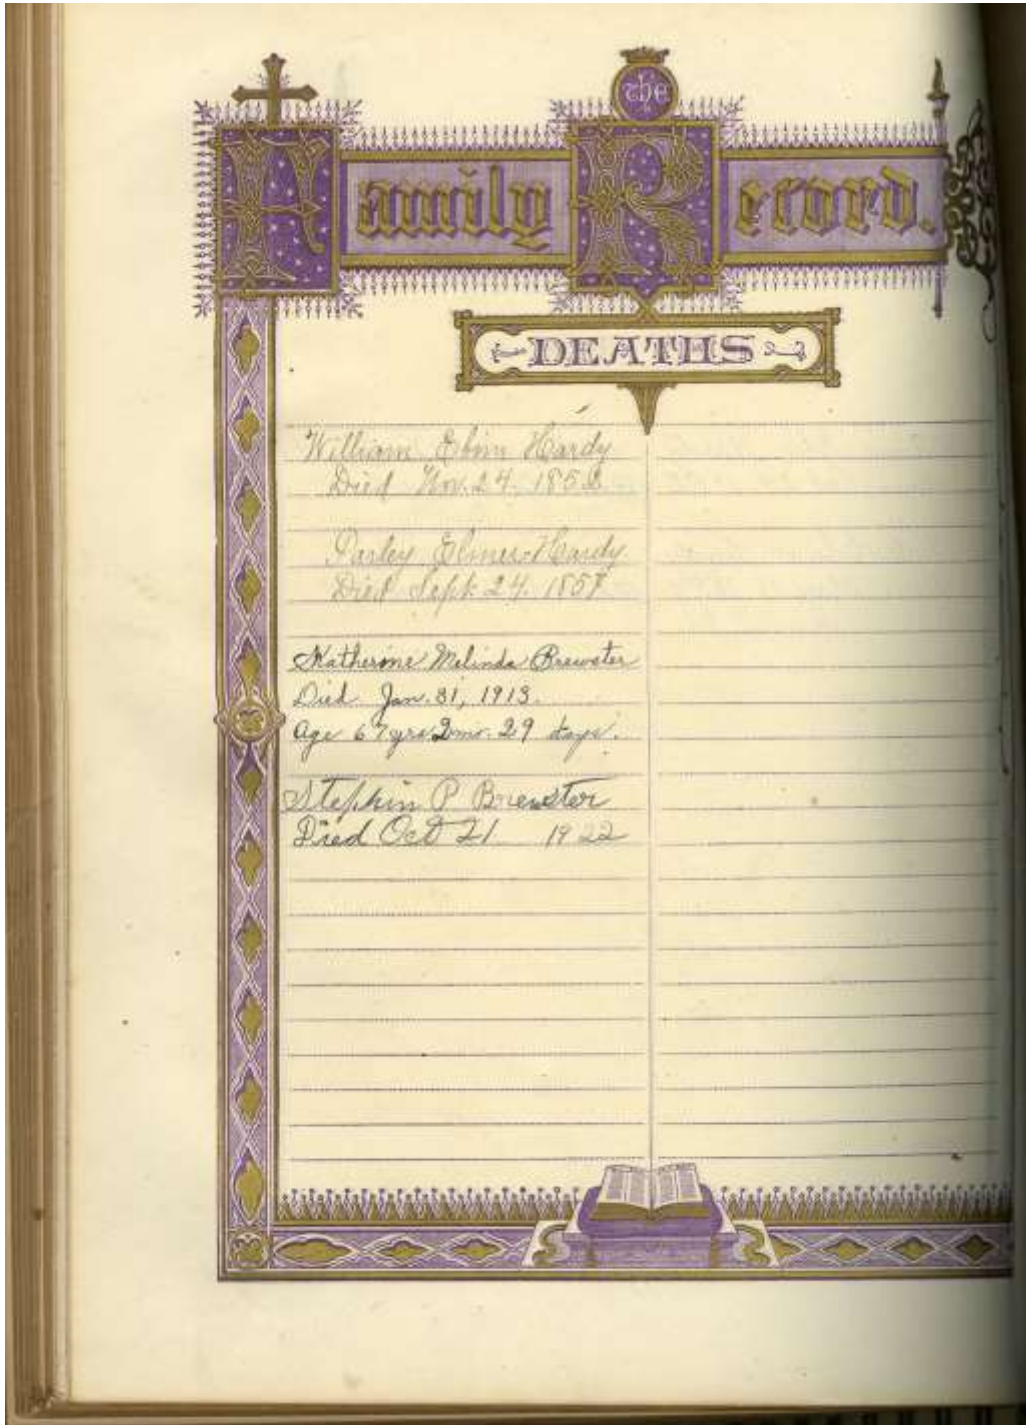 the
Family Record.
DEATHS
William Hardy
Died Nov. 24. 1852
Parley Elmer Hardy
Died Sept. 24. 1857
Katherine Melinda Brewster
Died Jan. 31, 1913.
Age 67 yrs 2 mo. 29 days.
Stephin P Brewster
Died Oct 21 1922